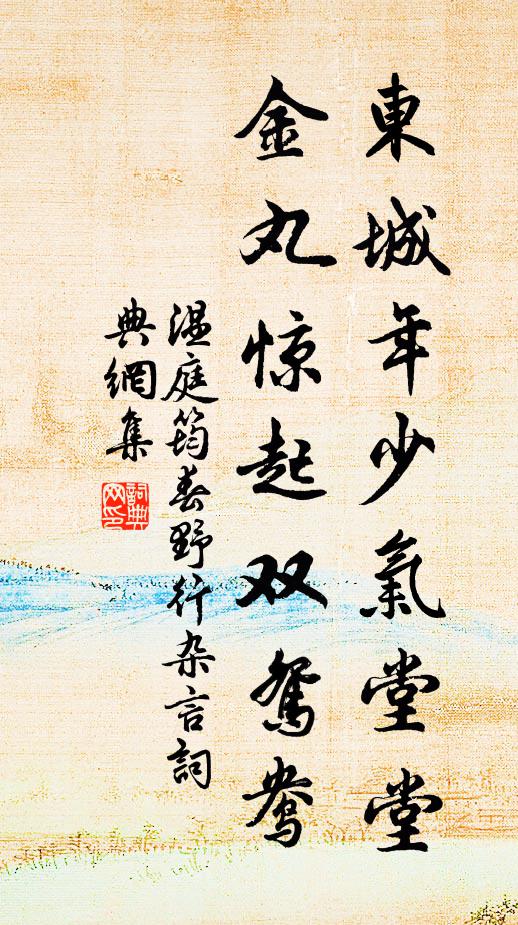 東城年少氣堂堂
金丸惊起双鸳鸯
温庭筠春野行杂言詞
典網集
詞典网印